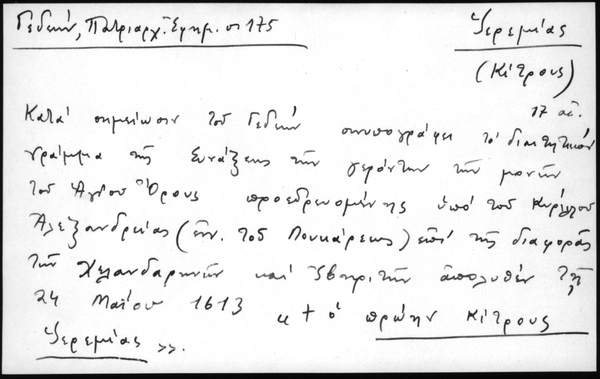 Γεδεών, Πατριαρχ. Ἐφημ. σ. 175
Ἱερεμίας
(Κίτρους)
17 αἰ.
Κατά σημείωσιν τοῦ Γεδεών συνυπογράφει τό διαιτητικόν
γράμμα τῆς Συνάξεως τῶν γερόντων τῶν μονῶν
τοῦ Ἁγίου Ὄρους προεδρευομένης ὑπό τοῦ Κυρίλλου
Ἀλεξανδρείας (ἐν. τοῦ Λουκάρεως) ἐπί τῆς διαφορᾶς
τῶν Χελανδαρηνῶν καί Ἰβηριτῶν ἀπολυθέν τῇ
24 Μαΐου 1613 « † ὁ πρώην Κίτρους
Ἱερεμίας ».